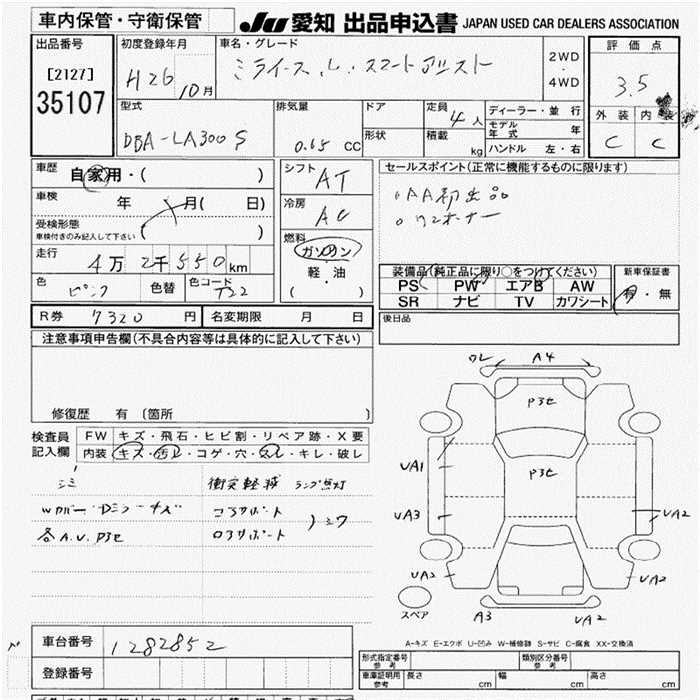 車内保管・守衛保管
JU 愛知 出品申込書 JAPAN USED CAR DEALERS ASSOCIATION
出品番号
[2127]
35107
初度登録年月
H26 10月
車名・グレード
ミライース L スマートアシスト
2WD
・
4WD
評価点
3.5
外装 内装
C C
型式
DBA-LA300S
排気量
0.65 CC
ドア
形状
定員 4人
積載 kg
ディーラー・並行
モデル年式 年
ハンドル 左・右
車歴
自家用・( )
車検
年 月( 日)
受検形態
車検付きのみ記入して下さい ( )
走行
4万2千550km
色
ピンク
色替
色コード
T22
シフト
AT
冷房
AC
燃料
ガソリン
・
軽・油
( )
セールスポイント(正常に機能するものに限ります)
・AA初出品
・ワンオーナー
装備品(純正品に限り○をつけてください)
PS PW エアB AW
SR ナビ TV カワシート
新車保証書
有・無
R券 7320 円
名変期限 月 日
後日品
注意事項申告欄(不具合内容等は具体的に記入して下さい)
修復歴 有 [箇所 ]
検査員記入欄
FW キズ・飛石・ヒビ割・リペア跡・X要
内装 キズ・汚レ・コゲ・穴・スレ・キレ・破レ
シミ
衝突軽減 ランプ点灯
Wカバー・Dミラーキズ
コアサポート
各A.U.P3セ
ロアサポート
シワ
ワレ A4
P3セ
P3セ
UA1
UA3
UA2
UA2
UA2
A3
UA2
スペア
A-キズ E-エクボ U-凹み W-補修跡 S-サビ C-腐食 XX-交換済
車台番号 1282852
登録番号
形式指定番号 参考
類別区分番号 参考
車庫証明用 参考
長さ cm
幅 cm
高さ cm